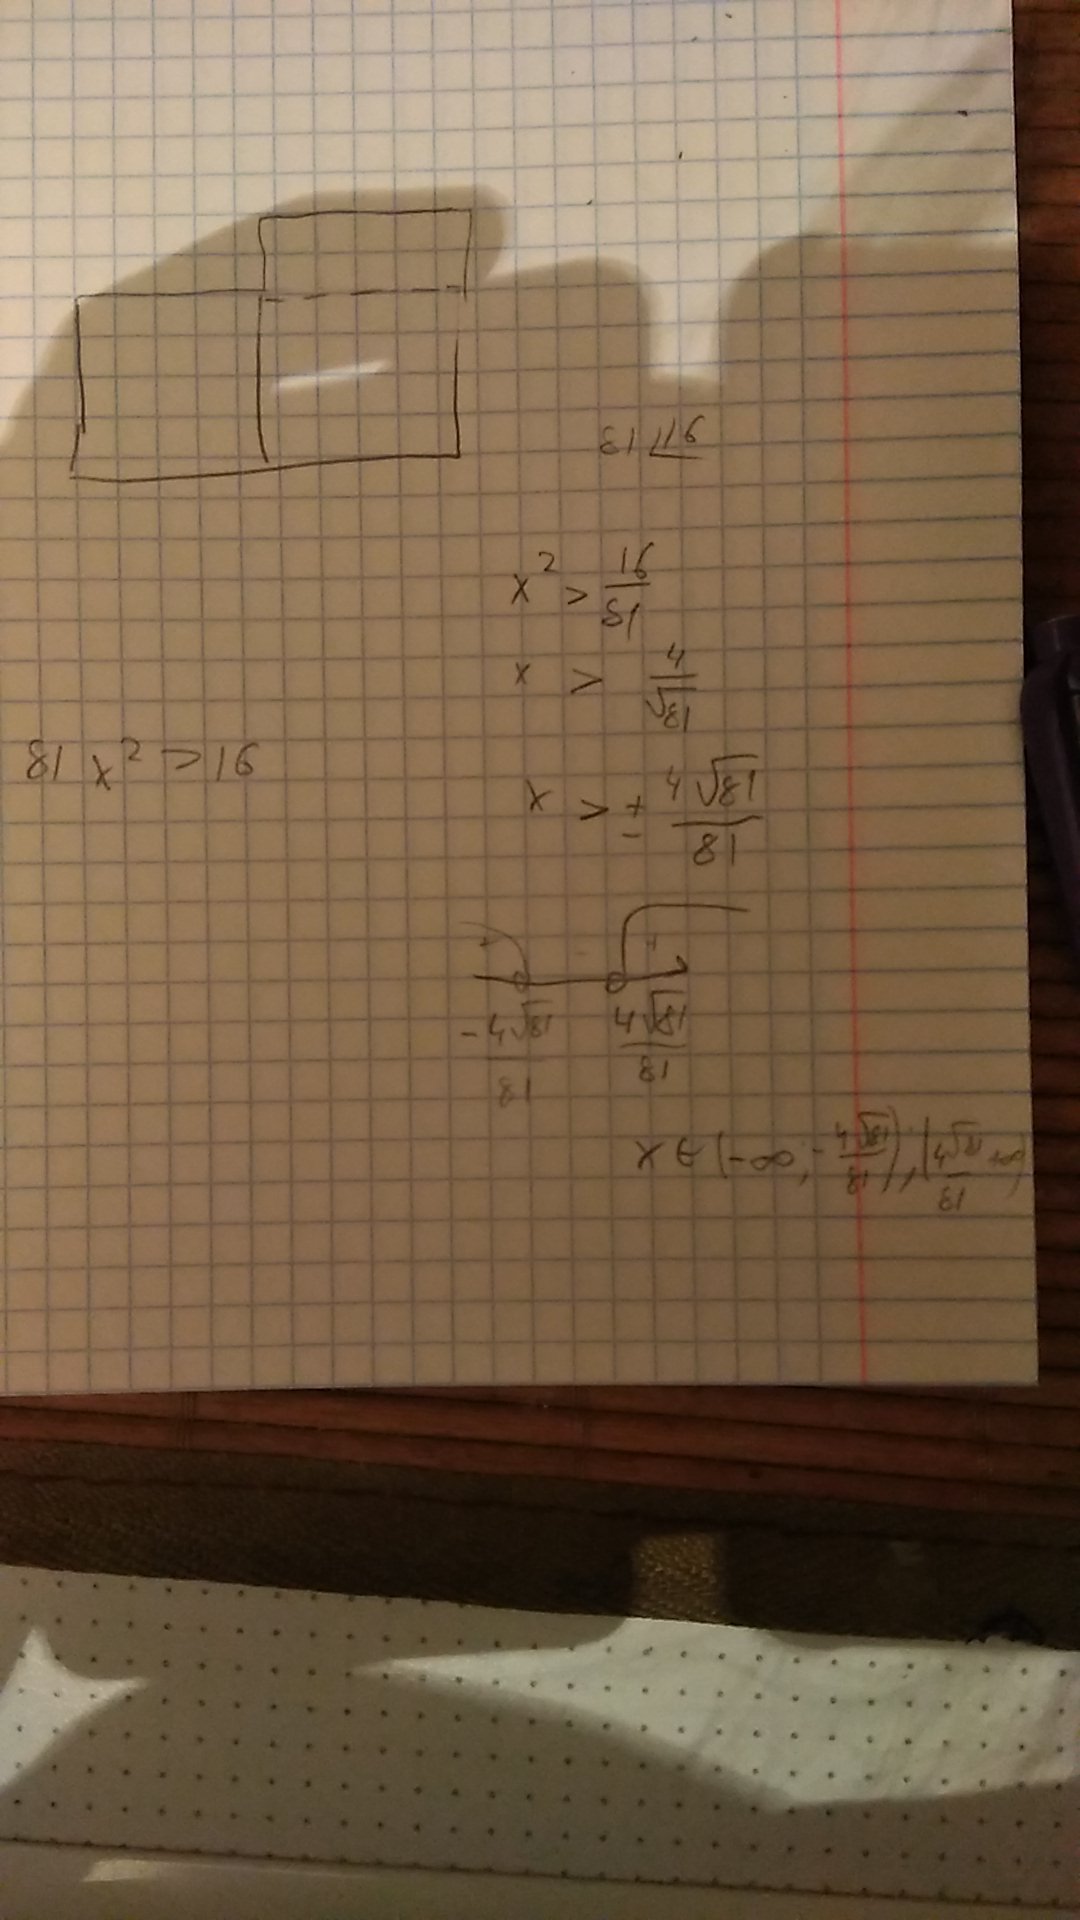 81 16
x² > 16/81
x > 4/√81
81 x² > 16
x > ± 4√81/81
+ - +
-4√81/81 4√81/81
x ∈ (-∞; -4√81/81), (4√81/81 +∞)